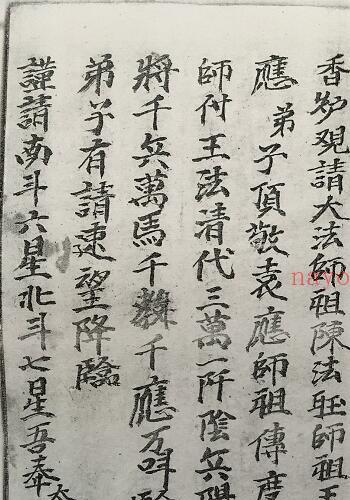 香炉覌請大法師祖陳法㽵師祖王
應弟子頂敬袁應師祖傳度
師付王法清代三萬一阡陰兵陽
將千兵萬馬千𪢮千應万呌
弟子有請速望降臨
謹請南斗六星北斗七星吾奉太
nayo